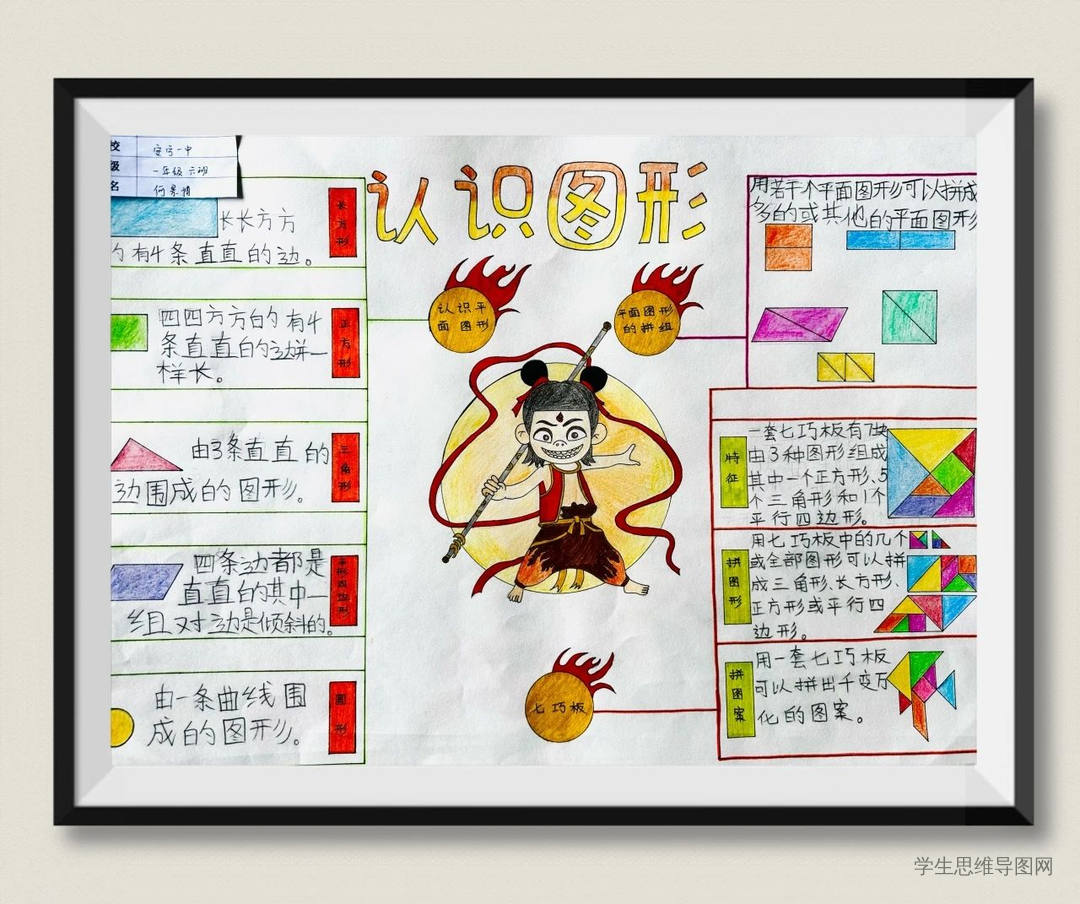 校
安宁一中
级
一年级 六班
名
认识图形
长方形
长长方方
的有4条直直的边。
正方形
四四方方的有4
条直直的边拼一
样长。
三角形
由3条直直的
边围成的图形。
平行四边形
四条边都是
直直的其中一
组对边是倾斜的。
圆形
由一条曲线围
成的图形。
认识平
面图形
平面图形
的拼组
七巧板
用若干个平面图形可以拼成
多的或其他的平面图形
特征
一套七巧板有7块
由3种图形组成
其中一个正方形、5
个三角形和1个
平行四边形。
拼图形
用七巧板中的几个
或全部图形可以拼
成三角形、长方形、
正方形或平行四
边形。
拼图案
用一套七巧板
可以拼出千变万
化的图案。
学生思维导图网